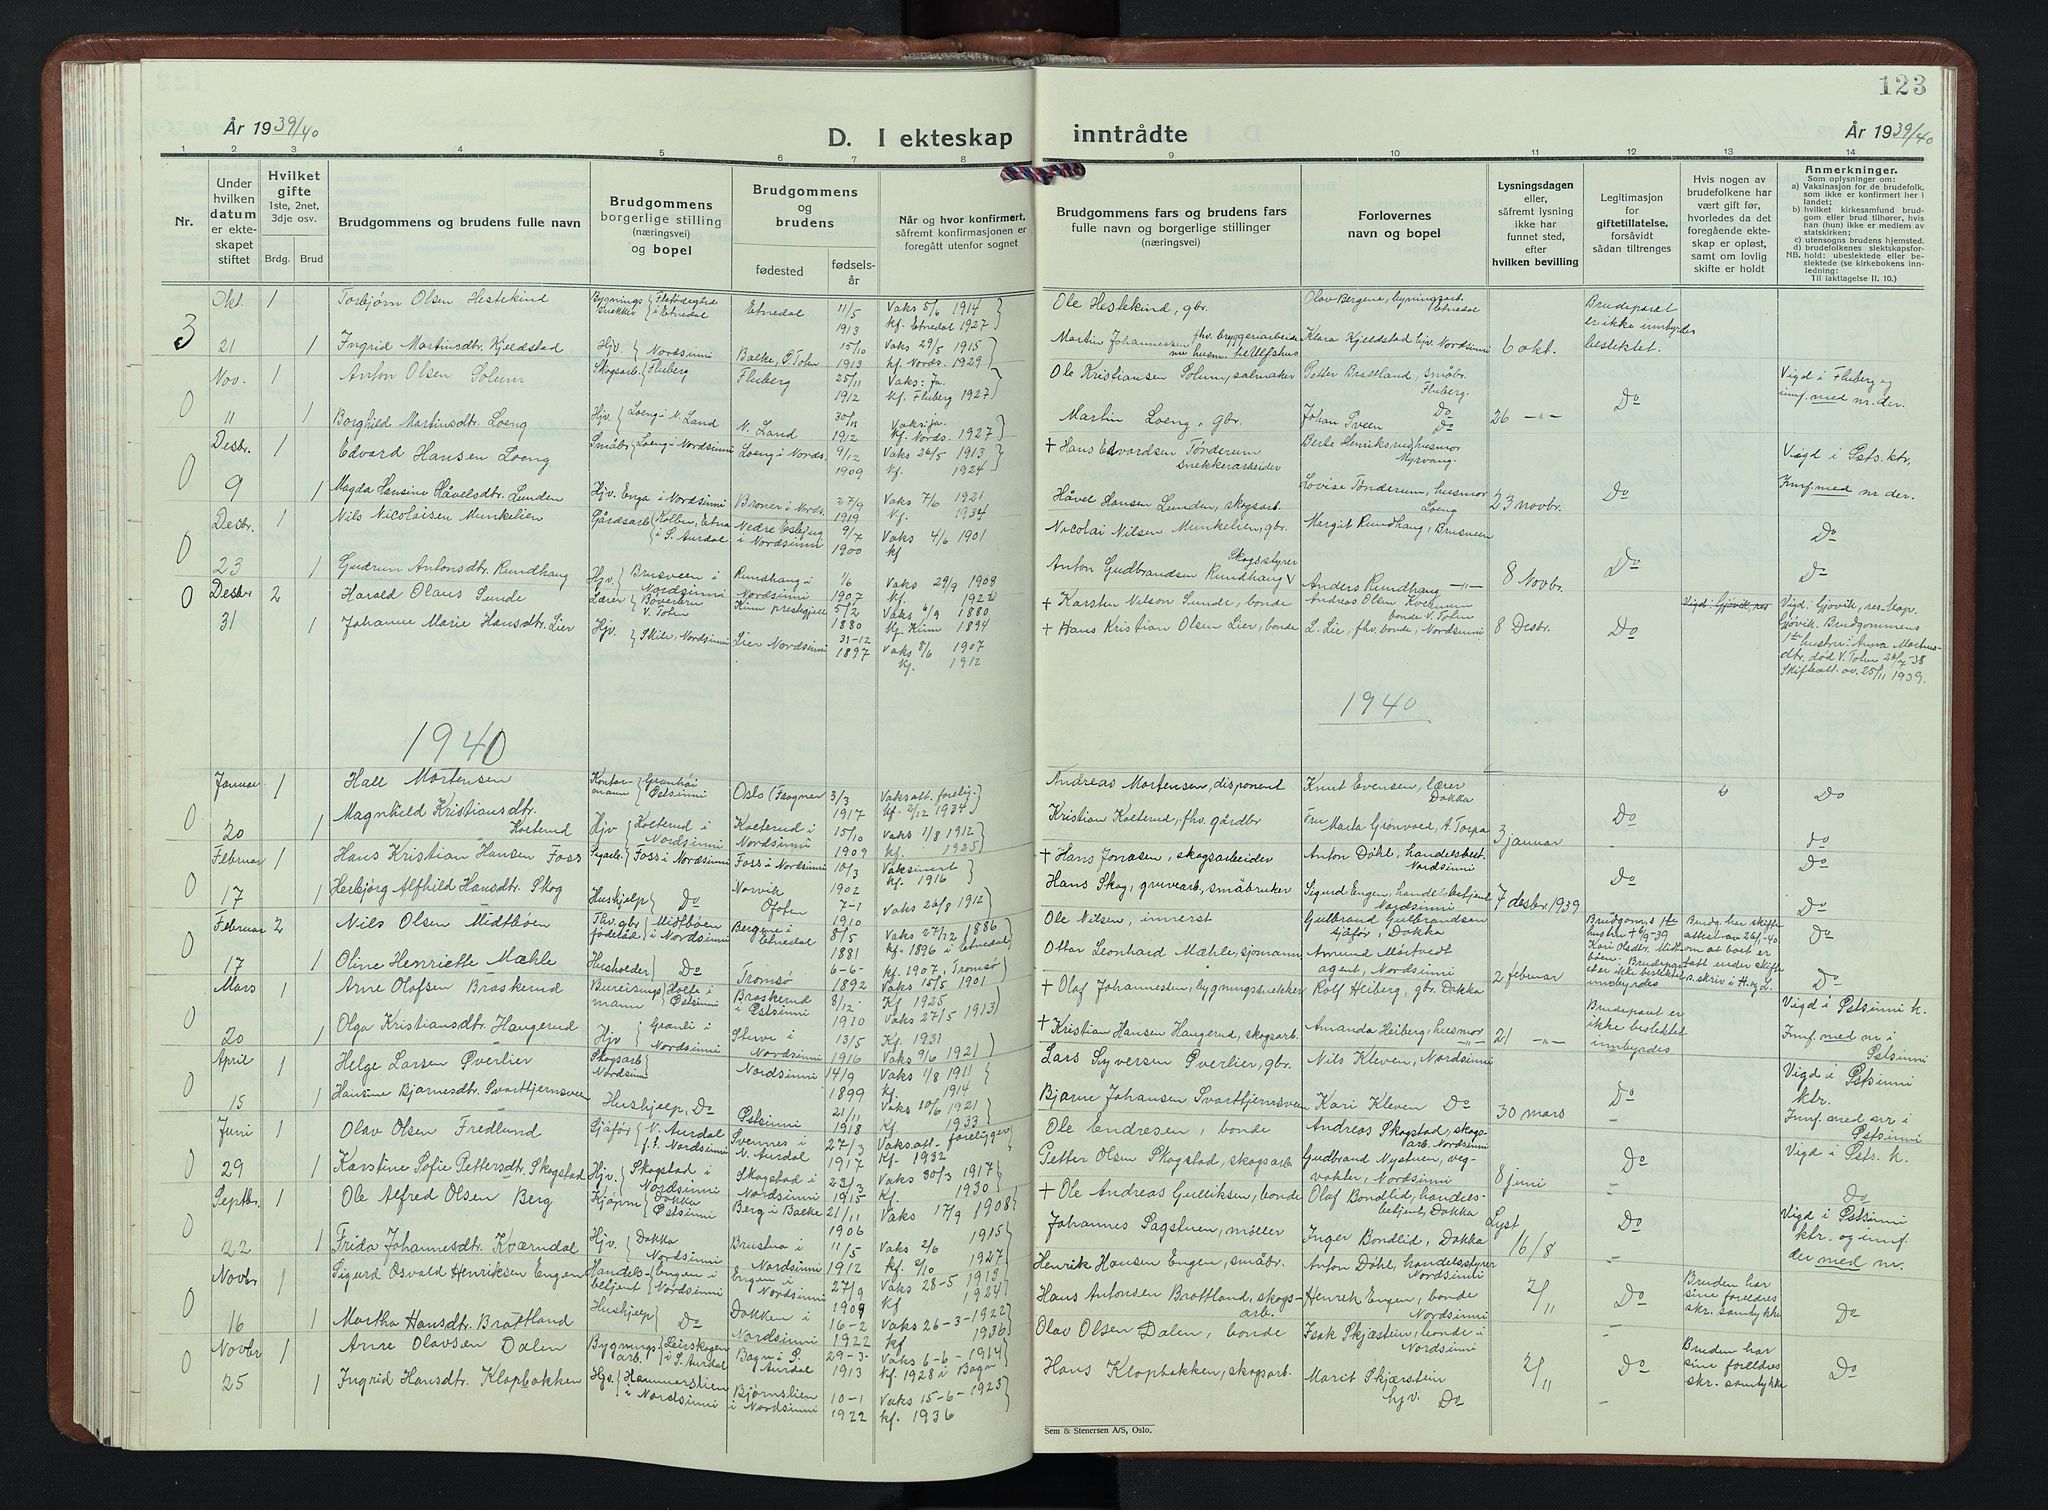 123
År 1939/40
D. I ekteskap inntrådte
År 1939/40
1 2 3 4 5 6 7 8 9 10 11 12 13 14
Nr.
Under hvilken datum er ekteskapet stiftet
Hvilket gifte 1ste, 2net, 3dje osv.
Brdg. Brud
Brudgommens og brudens fulle navn
Brudgommens borgerlige stilling (næringsvei) og bopel
Brudgommens og brudens
fødested
fødselsår
Når og hvor konfirmert, såfremt konfirmasjonen er foregått utenfor sognet
Brudgommens fars og brudens fars fulle navn og borgerlige stillinger (næringsvei)
Forlovernes navn og bopel
Lysningsdagen eller, såfremt lysning ikke har funnet sted, efter hvilken bevilling
Legitimasjon for giftetillatelse, forsåvidt sådan tiltrenges
Hvis nogen av brudefolkene har vært gift før, hvorledes da det foregående ekteskap er opløst, samt om lovlig skifte er holdt
Anmerkninger.
Som oplysninger om:
a) Vaksinasjon for de brudefolk, som ikke er konfirmert her i landet;
b) hvilket kirkesamfund brudgom eller brud tilhører, hvis han (hun) ikke er medlem av statskirken;
c) utensogns brudens hjemsted.
d) brudefolkenes slektskapsforhold: ubeslektede eller beslektede (se kirkebokens innledning:
NB.
Til iakttagelse II. 10.)
3 Okt. 1 Torbjørn Olsen Hestekind Bygningssnekker i Etnedal Etnedal 11/5 1913 Vaks 5/6 1914 kf. Etnedal 1927 Ole Hestekind, gbr. Olav Bergene, bygningsarb. Etnedal Brudeparet er ikke innbyrdes beslektet.
21 1 Ingrid Martinsdtr. Kjeldstad Hjv. Nordsinni Balke, Ø. Toten 15/10 1913 Vaks 29/5 1915 kf. Nords. 1929 Martin Johannessen fhv. bryggeriarbeider Klara Kjeldstad hjv. Nordsinni 6 okt.
0 Nov. 1 Anton Olsen Solum Skogsarb. Fluberg Fluberg 25/11 1912 Vaks: Ja. Kf. Fluberg 1927 Ole Kristiansen Solum, salmaker Petter Brattland, småbr. Fluberg. Do Vigd i Fluberg og innf. med nr. der.
11 1 Borghild Martinsdtr. Loeng Hjv. Loeng i N. Land N. Land 1912 Vaks: ja. Kf. Nords. 1927 Martin Loeng, gbr. Johan Sveen Do 26 -"-
0 Desbr. 1 Edvard Hansen Loeng Småbr. Loeng i Nordsinni Loeng i Nords. 9/12 1909 Vaks 26/5 1913 Kf. 1924 + Hans Edvardsen Tønderum snekkerarbeider Berte Henriksrud husmor Myrvang. Do Vigd i Østs. ktr.
9 1 Magda Hansine Håvelsdtr. Lunden Hjv. Enga i Nordsinni Broner i Nords. 27/9 1919 Vaks 7/6 1921 Kf. 1934 Håvel Hansen Lunden, skogsarb. Lovise Tønderum, husmor Loeng 23 novbr. Innf. med nr der.
0 Desbr. 1 Nils Nicolaisen Munkelien Gårdsarb. Kolben, Etna i S. Aurdal Nedre Esbjug i Nordsinni 9/7 1900 Vaks 4/6 1901 kf Nicolai Nilsen Munkelien, gbr. Margit Rundhaug, Brusveen Do Do
23 1 Gudrun Antonsdtr. Rundhaug Hjv. Brusveen i Nordsinni Rundhaug i Nordsinni 1/6 1907 Vaks 29/9 1908 Kf. 1922 Anton Gudbrandsen Rundhaug Skogsstyrer Anders Rundhaug -"- 8 Novbr. Do
0 Desbr 2 Harald Olaus Sunde Lærer V. Toten Kinn prestegjeld 5/2 1880 Vaks 6/9 1880 Kf. Kinn 1894 + Karsten Nilson Sunde, bonde Andreas Olsen Kvernum bonde V. Toten Do Vigd: Gjøvik, res. kap. Gjøvik. Brudgommens 1ste hustru: Anna Marthusdtr. død V. Toten 26/7-38 Skifteatt. av. 25/11 1939.
31 1 Johanne Marie Hansdtr. Lier Hjv. Skile, Nordsinni Lier Nordsinni 31-12 1897 Vaks 8/6 1907 kf. 1912 + Hans Kristian Olsen Lier, bonde L. Lie, fhv. bonde, Nordsinni 8 Desbr.
1940
1940
0 Januar 1 Hall Mortensen Kontormann Granhei Østsinni Oslo (Frogner 3/3 1917 Vaks att. forelig. Kf. 2/12 1934 Andreas Mortensen, disponent Knut Evensen, lærer Dokka Do Do
20 1 Magnhild Kristiansdtr. Koeterud Hjv Koeterud i Nordsinni Koeterud i Nordsinni 15/10 1909 Vaks 1/8 1912 kf. 1925 Kristian Koeterud, fhv. gårdbr Fru Marta Grønvold, A. Torpa 3 januar Do
0 Februar 1 Hans Kristian Hansen Foss Foss i Nordsinni Foss i Nordsinni 10/3 1902 Vaksinert kf. 1916 + Hans Jonasen, skogsarbeider Anton Døhl, handelsbest. Nordsinni Do Do
17 1 Herbjørg Alfhild Hansdtr. Skog Hushjelp Do Narvik Ofoten 7-1 1910 Vaks 26/8 1912 Hans Skog, gruvearb, småbruker Sigurd Engen, handelsbetjent Nordsinni 7 desbr. 1939 Do
0 Februar 2 Nils Olsen Midtbøen Fhv. gbr. føderåd Midtbøen i Nordsinni Bergene i Etnedal 8/5 1881 Vaks 27/12 1886 kf. 1896 i Etnedal Ole Nilsen, innerst Gulbrand Gulbrandsen sjåfør, Dokka Brudgom.s 1ste hustru + 6/9-39 Kari Olsdtr. Midtbøen. Brudeparet er ikke beslektet innbyrdes Brudg. har skifteattest av 26/1-40 om at boet er tatt under skifte a. skriv i H. og L. Do
17 1 Oline Henriette Mæhle Husholder Do Tromsø 6-6- 1892 kf. 1907, Tromsø Vaks 15/5 1901 Ottar Leonhard Mæhle, sjømann Amund Mortvedt agent, Nordsinni 2 februar Do
0 Mars 1 Arne Olafsen Braskerud Bureisingsmann Holte i Østsinni Braskerud i Østsinni 8/12 1910 Kf 1925 Vaks 27/5 1913 + Olaf Johannesen, bygningssnekker Rolf Heiberg, gbr. Dokka Brudeparet er ikke beslektet innbyrdes Vigd i Østsinni k.
20 1 Olga Kristiansdtr. Haugerud Hjv Granli i Nordsinni Sterve i Nordsinni 13/5 1916 Kf. 1931 Vaks 9/6 1921 + Kristian Hansen Haugerud, skogsarb. Amanda Heiberg, husmor -"- 21 -"- Innf. med nr i Østsinni
0 April 1 Helge Larsen Øverlier Skogsarb Nordsinni Nordsinni 14/9 1899 Vaks 1/8 1911 kf. 1914 Lars Syversen Øverlier, gbr. Nils Kleven, Nordsinni Do Vigd i Østsinni ktr.
15 1 Hansine Bjarnesdtr. Svarttjernsveen Hushjelp, Do Østsinni 21/11 1918 Vaks 10/6 1921 Kf. 1933 Bjarne Johansen Svarttjernsveen Kari Kleven Do 30 mars Innf. med nr i Østsinni
0 Juni 1 Olav Olsen Fredlund Sjåfør V. Aurdal f.t. Nordsinni Svennes i V. Aurdal 27/3 1917 Vaksatt. foreligger Kf. 1932 Ole Endresen, bonde Andreas Skogstad, skogsarb. Nordsinni Do Vigd i Østs. k.
29 1 Karstine Sofie Pettersdtr. Skogstad Hjv. Skogstad i Nordsinni Skogstad i Nordsinni 23/3 1915 Vaks 30/3 1917 Kf. 1930 Petter Olsen Skogstad, skogsarb Gudbrand Nystuen, vegvokter, Nordsinni 8 juni Do
0 Septbr. 1 Ole Alfred Olsen Berg Kjøpm Dokka Østsinni Berg i Balke 21/11 1906 Vaks 17/9 1908 + Ole Andreas Gulliksen, bonde Olaf Bondlid, handelsbetjent, Dokka Do Vigd i Østsinni ktr. og innf. der med nr.
22 1 Frida Johannesdtr. Kværndal Hjv. Dokka Nordsinni Brustua i Nordsinni 11/5 1912 Vaks 2/6 1915 kf. 2/10 1927 Johannes Sagstuen, møller Inger Bondlid, Dokka Lyst 16/8
0 Novbr 1 Sigurd Osvald Henriksen Engen Handelsbetjent Engen i Nordsinni Engen i Nordsinni 27/9 1909 Vaks 28-5 1912 kf 1924 Henrik Hansen Engen, småbr. Anton Døhl, handelsstyrer Nordsinni 2/11 Do Bruden har sine foreldres skr. samtykke Do
16 1 Martha Hansdtr. Brattland Hushjelp Do Dokken i Nordsinni 16-2 1922 Vaks 26-3-1922 kf 1936 Hans Antonsen Brattland, skogsarb. Henrik Engen, bonde Nordsinni
0 Novbr 1 Arne Olavsen Dalen Bygningsarb. Leirskogen i S. Aurdal Bagn i S. Aurdal 29-3- 1913 Vaks 6-6-1914 Kf. 1928 i Bagn Olav Olsen Dalen, bonde Isak Skjæstein, bonde i Nordsinni 2/11 Do Bruden har sine foreldres skr. samtykke Do
25 1 Ingrid Hansdtr. Klopbakken Hjv. Hammerstien i Nordsinni Bjørnslien i Nordsinni 10-1 1922 Vaks 15-6-1923 kf. 1936 Hans Klopbakken, skogsarb. Marit Skjæstein hjv. Do
Sem & Stenersen A/S, Oslo.